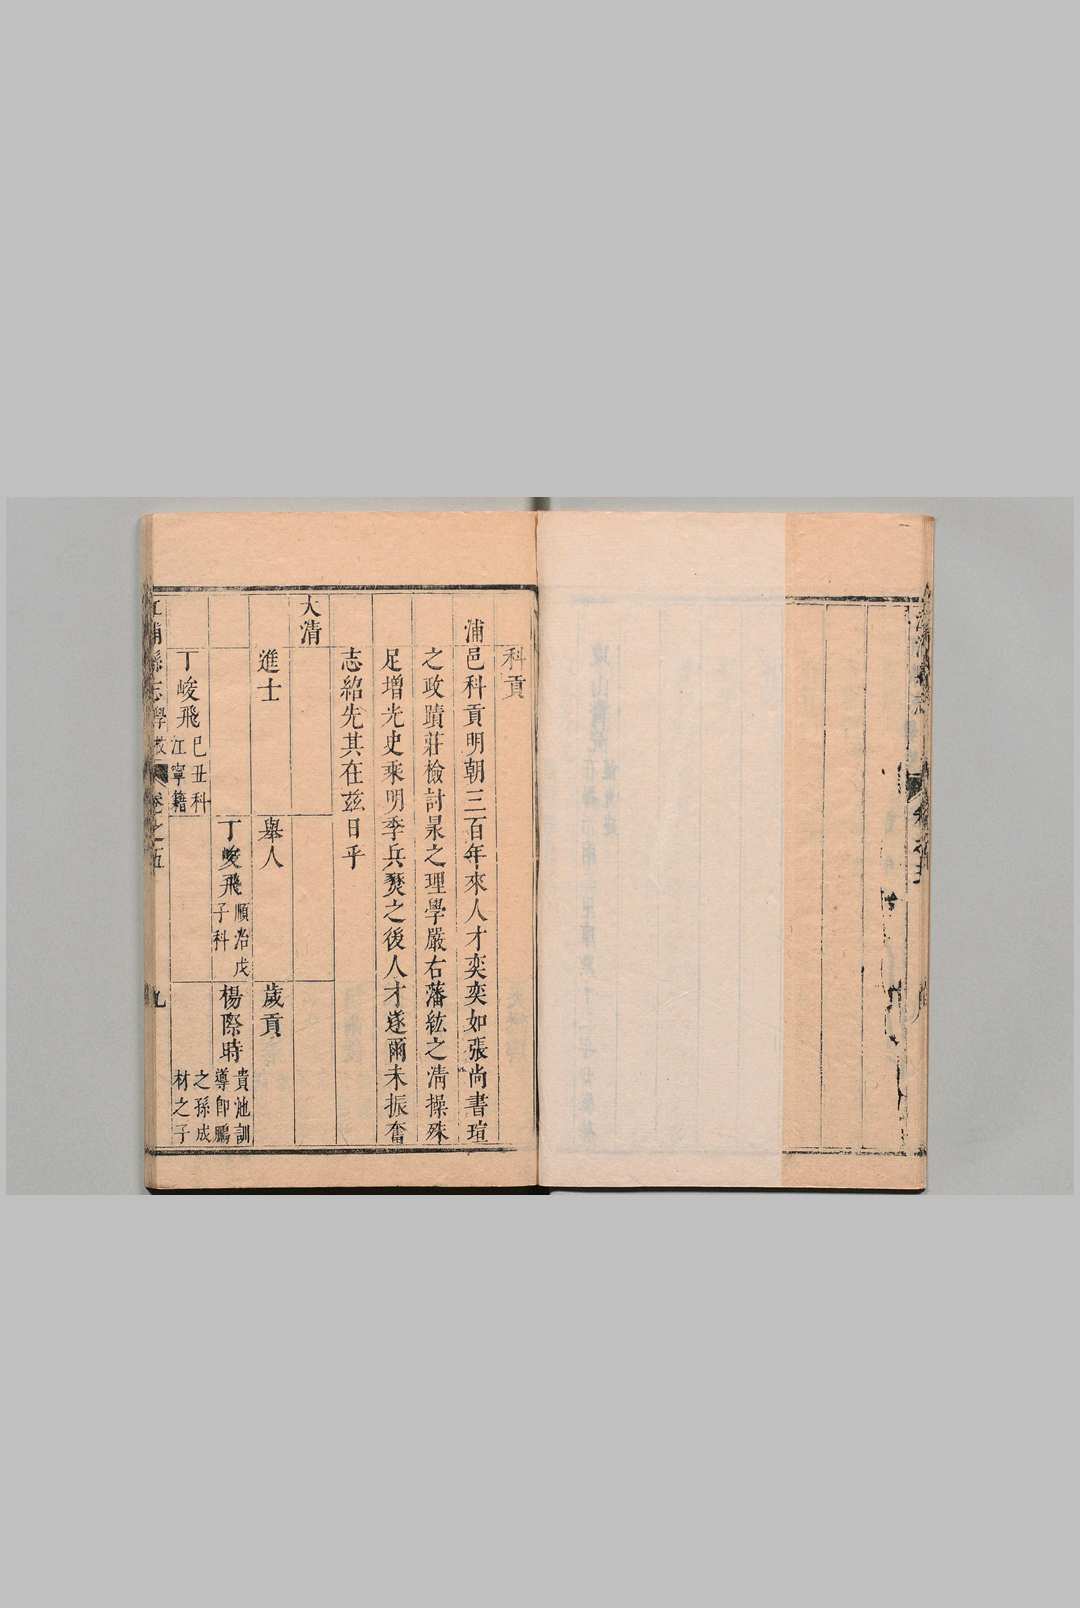 科貢
浦邑科貢明朝三百年來人才奕奕如張尚書瑄
之政蹟莊檢討㫤之理學嚴右藩紘之清操殊
足增光史乘明季兵燹之後人才遂爾未振奮
志紹先其在兹日乎
大清
進士
舉人
歲貢
丁峻飛 順治戊子科
楊際時 貴池訓導即鵬之孫成材之子
丁峻飛 己丑科江寧籍
江浦縣志學校 卷之五 九